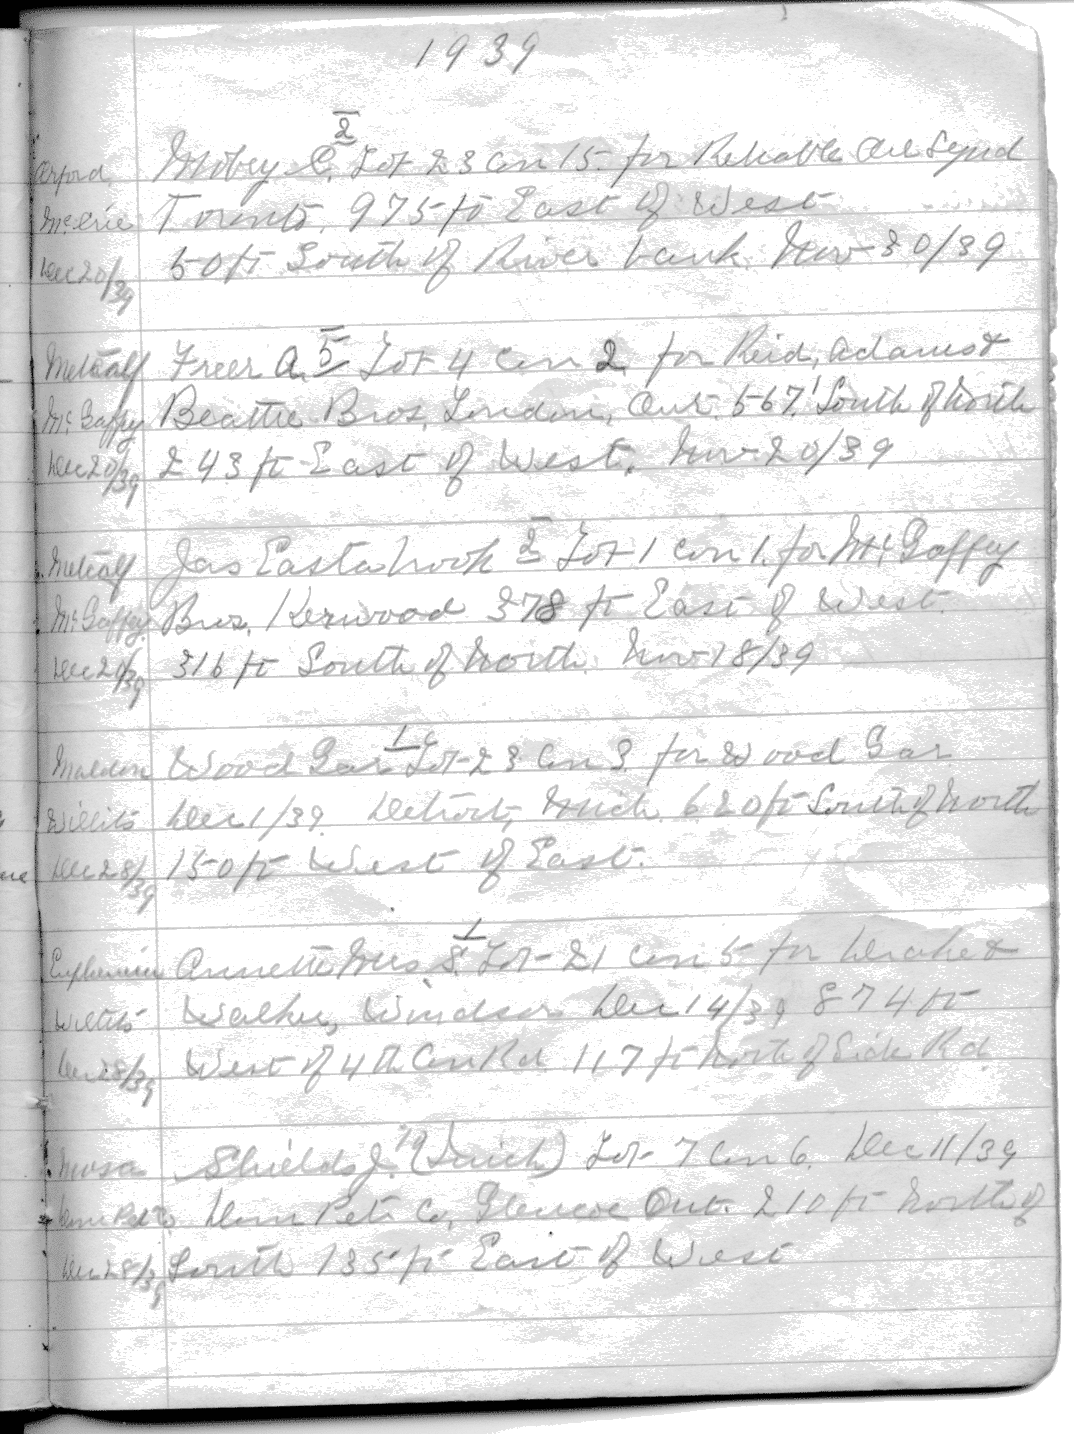 1939
2
Orford Mobey C. Lot 23 Con 15. for Reliable Oil Synd
Toronto. 975 ft East of West
Dec 20/39 50 ft South of River bank. Nov 30/39
5
Metcalf Freer A. Lot 4 Con 2 for Reid, Adams &
McGaffey Beattie Bros, London, Ont. 567' South of North
Dec 20/39 243 ft East of West. Nov 20/39
2
Metcalf Jas Eastabrook Lot 1 Con 1. for McGaffey
McGaffey Bros. Kerwood 378 ft East of West.
Dec 20/39 316 ft South of North. Nov 18/39
1
Malden Wood Gar Lot 23 Con 3. for Wood Gar
Willits Dec 1/39. Detroit, Mich. 620 ft South of North
Dec 28/39 150 ft West of East.
1
Euphemia Annett Mrs. S. Lot 21 Con 5 for Drake &
Willits Walker, Windsor Dec 14/39 874 ft
Dec 28/39 West of 4th Con Rd 117 ft North of Side Rd
Mosa Shields J. Lot 7 Con 6. Dec 11/39
Dom Pet Co. Dom Pete Co, Glencoe Ont. 210 ft North of
Dec 28/39 South 135 ft East of West